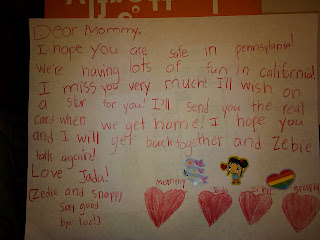 Dear Mommy,
I hope you are safe in pennsylvania!
We're having lots of fun in california!
I miss you very much! I'll wish on
a star for you! I'll send you the real
card when we get home! I hope you
and I will get back together and Zebie
talk again!
Love - Jada!
(Zedie and snappy
say good
bye too!)
Mommy Jada Zebie snappy